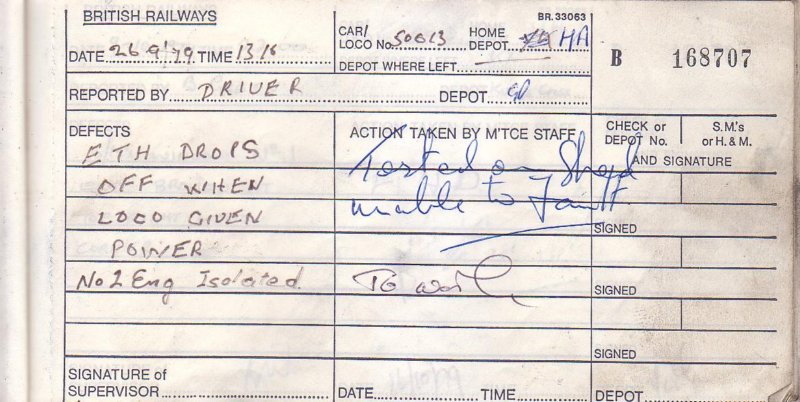 BRITISH RAILWAYS
BR.33063
DATE 26 9 '79 TIME 1310
CAR/ LOCO No. 50013 HOME DEPOT HA
DEPOT WHERE LEFT
B 168707
REPORTED BY DRIVER DEPOT
DEFECTS
ACTION TAKEN BY M'TCE STAFF
CHECK or DEPOT No.
S.M.'s or H. & M.
AND SIGNATURE
ETH DROPS
OFF WHEN
LOCO GIVEN
POWER
No 2 Eng Isolated
Tested on Shed
unable to Fault
To work
SIGNED
SIGNED
SIGNED
SIGNATURE of
SUPERVISOR
DATE TIME DEPOT